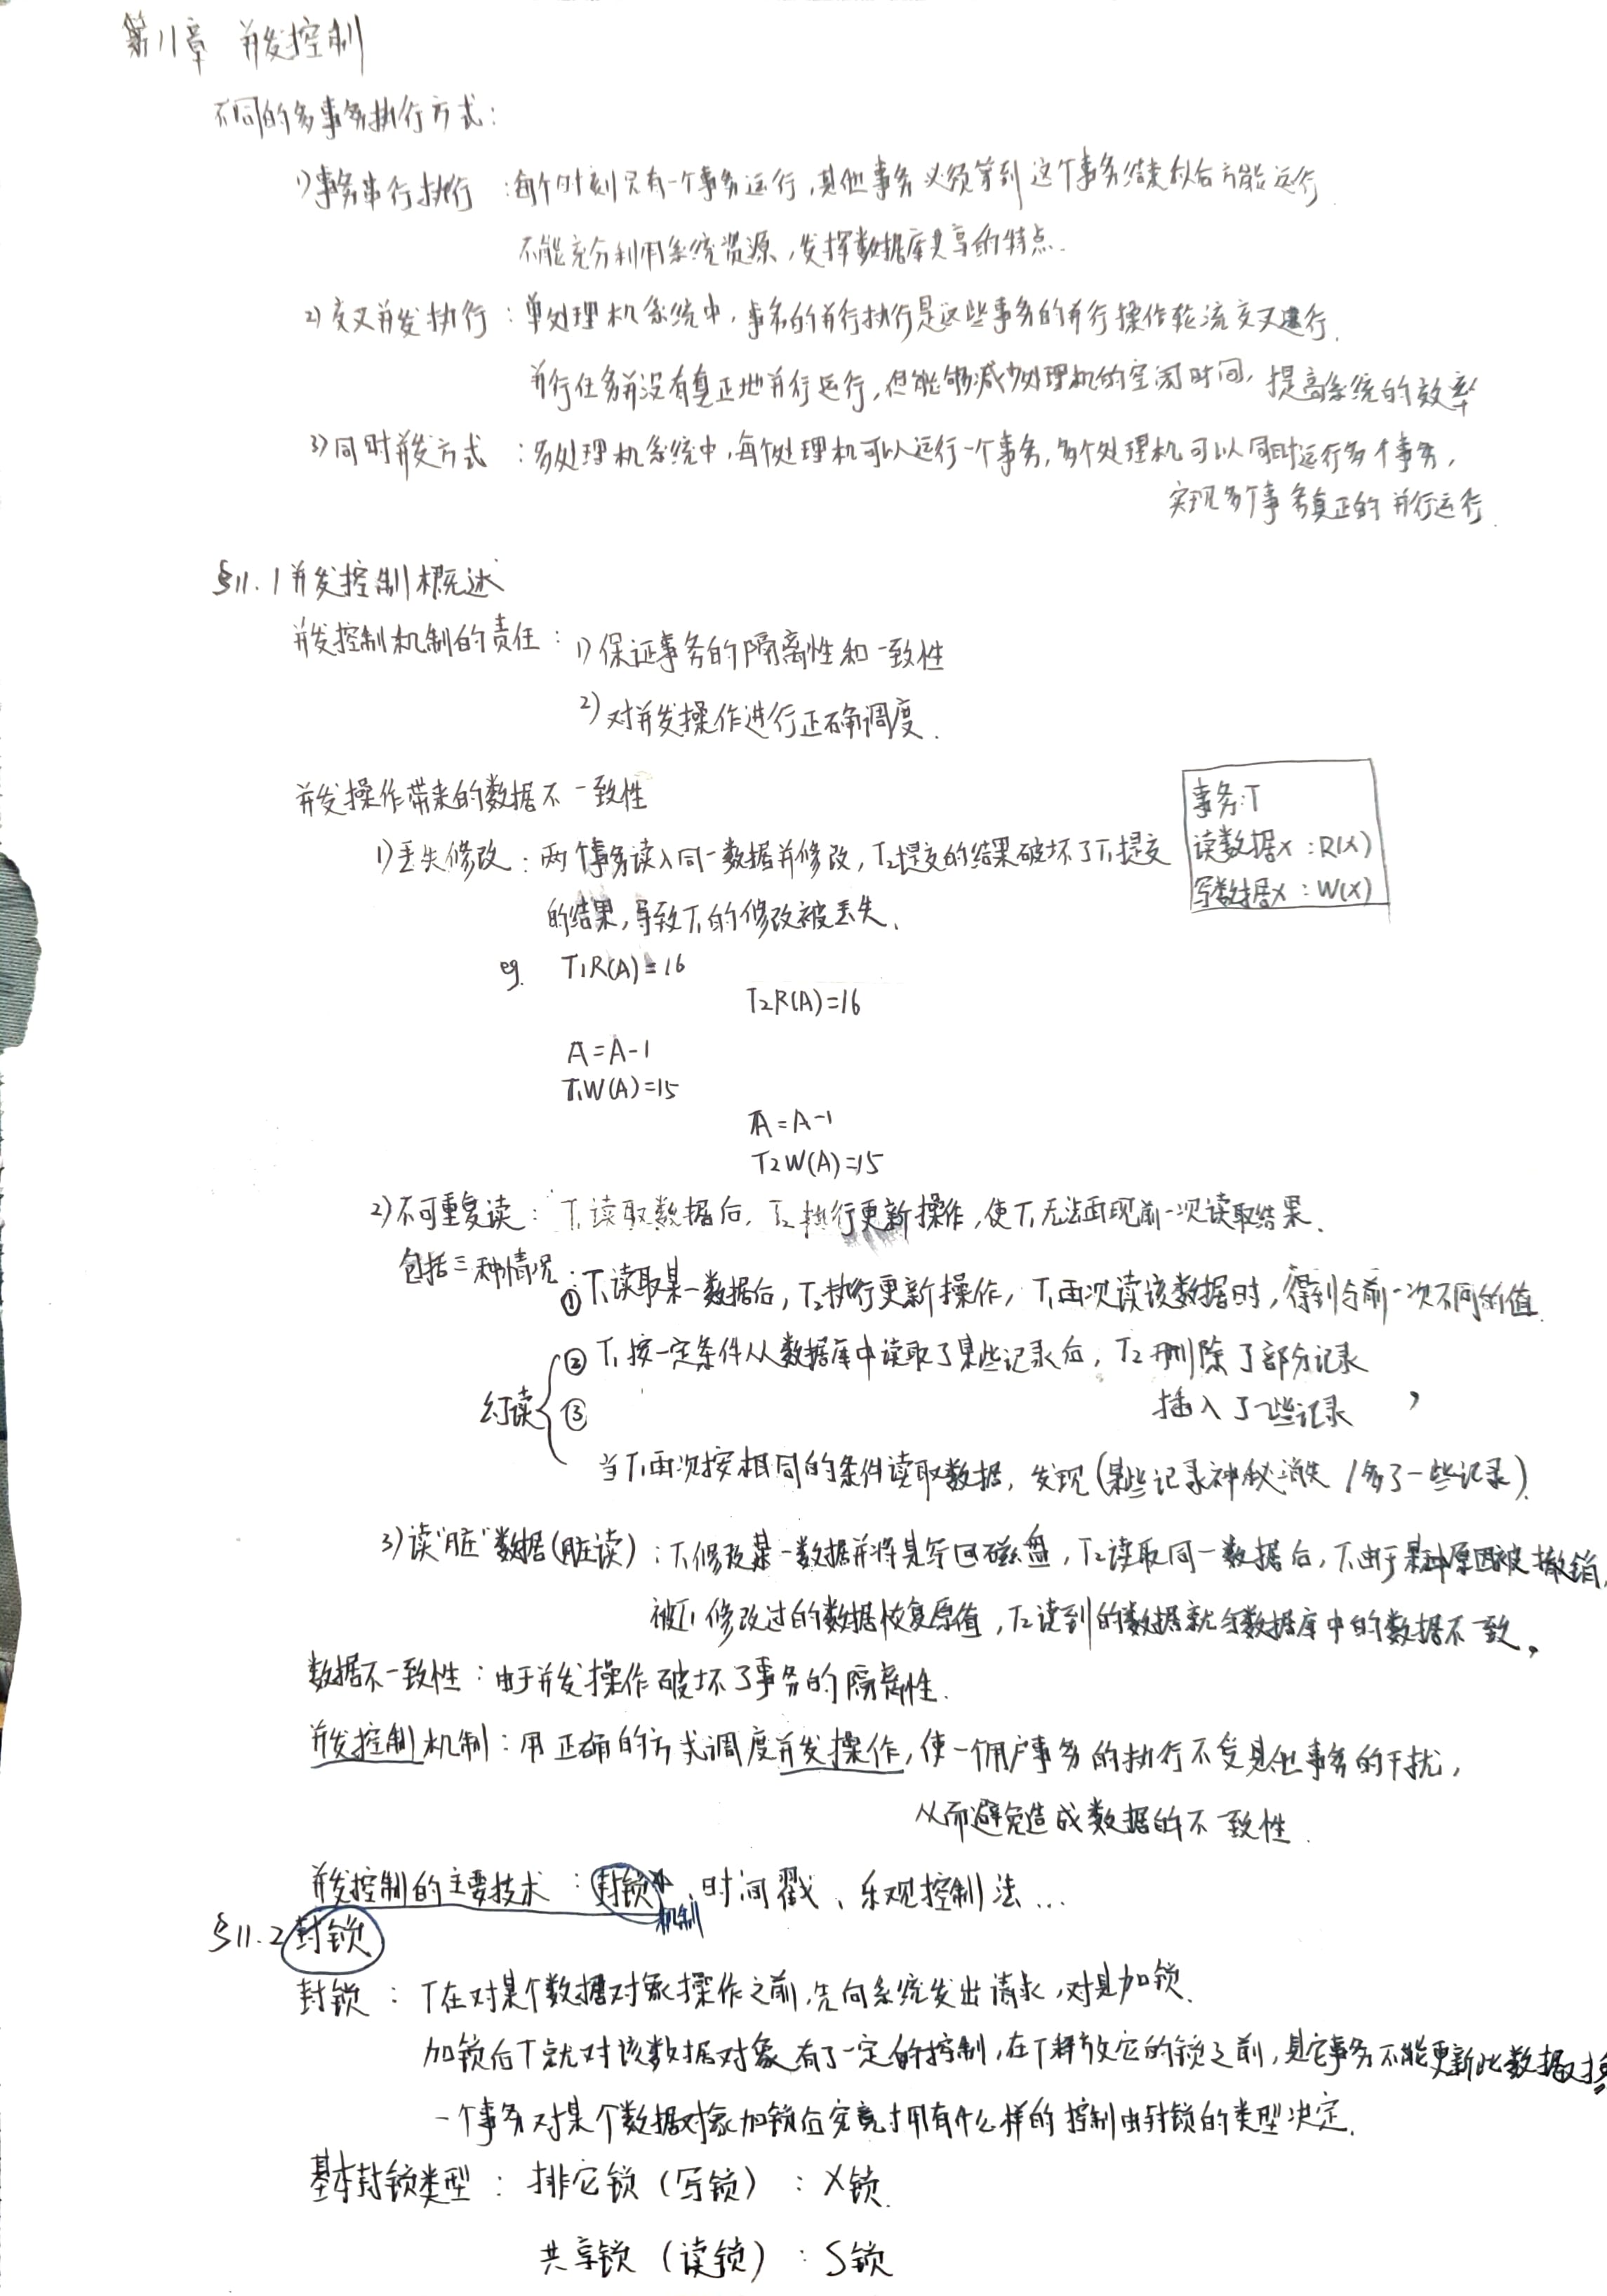 第11章 并发控制
不同的多事务执行方式:
1)事务串行执行 :每个时刻只有一个事务运行,其他事务必须等到这个事务结束以后方能运行
不能充分利用系统资源,发挥数据库共享的特点.
2)交叉并发执行 : 单处理机系统中,事务的并行执行是这些事务的并行操作轮流交叉运行.
并行任务并没有真正地并行运行,但能够减少处理机的空闲时间,提高系统的效率
3)同时并发方式 : 多处理机系统中,每个处理机可以运行一个事务,多个处理机可以同时运行多个事务,
实现多个事务真正的并行运行.
§11.1并发控制概述
并发控制机制的责任 : 1)保证事务的隔离性和一致性
2)对并发操作进行正确调度.
并发操作带来的数据不一致性
事务:T
读数据x : R(X)
写数据x : W(X)
1)丢失修改 : 两个事务读入同一数据并修改,T2提交的结果破坏了T1提交
的结果,导致T1的修改被丢失.
eg. T1R(A)=16
T2R(A)=16
A=A-1
T1W(A)=15
A=A-1
T2W(A)=15
2)不可重复读 : T1读取数据后,T2执行更新操作,使T1无法再现前一次读取结果.
包括三种情况 :
① T1读取某一数据后,T2执行更新操作,T1再次读该数据时,得到与前一次不同的值.
② T1按一定条件从数据库中读取了某些记录后,T2删除了部分记录
幻读 ③ 插入了一些记录 ,
当T1再次按相同的条件读取数据,发现(某些记录神秘消失/多了一些记录).
3)读"脏"数据(脏读) : T1修改某一数据并将其写回磁盘,T2读取同一数据后,T1由于某种原因被撤销,
被T1修改过的数据恢复原值,T2读到的数据就与数据库中的数据不一致.
数据不一致性 : 由于并发操作破坏了事务的隔离性.
并发控制机制 : 用正确的方式调度并发操作,使一个用户事务的执行不受其他事务的干扰,
从而避免造成数据的不一致性.
并发控制的主要技术 : 封锁机制、时间戳、乐观控制法...
§11.2封锁
封锁 : T在对某个数据对象操作之前,先向系统发出请求,对其加锁.
加锁后T就对该数据对象有了一定的控制,在T释放它的锁之前,其它事务不能更新此数据对象
一个事务对某个数据对象加锁后究竟拥有什么样的控制由封锁的类型决定.
基本封锁类型 : 排它锁(写锁) : X锁.
共享锁(读锁) : S锁